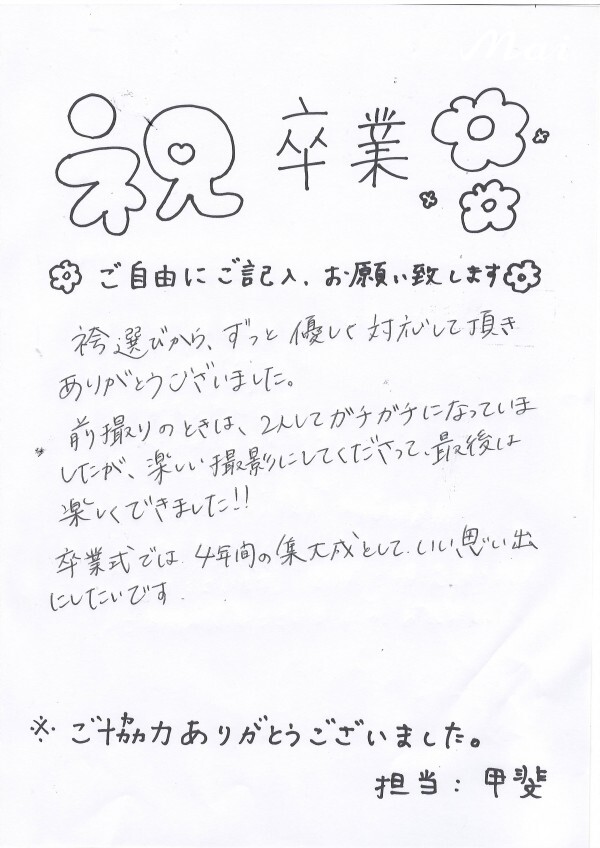 Mai
祝卒業
ご自由にご記入、お願い致します
袴選びから、ずっと優しく対応して頂き
ありがとうございました。
前撮りのときは、2人してガチガチになっていま
したが、楽しい撮影にしてくださって、最後は
楽しくできました!!
卒業式では、4年間の集大成として、いい思い出
にしたいです.
※ ご協力ありがとうございました。
担当: 甲斐